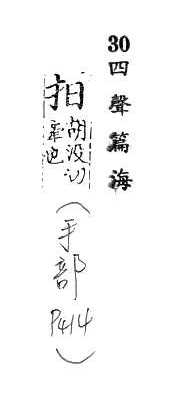 30四聲篇海
抇
胡没切
也
(手部P414)